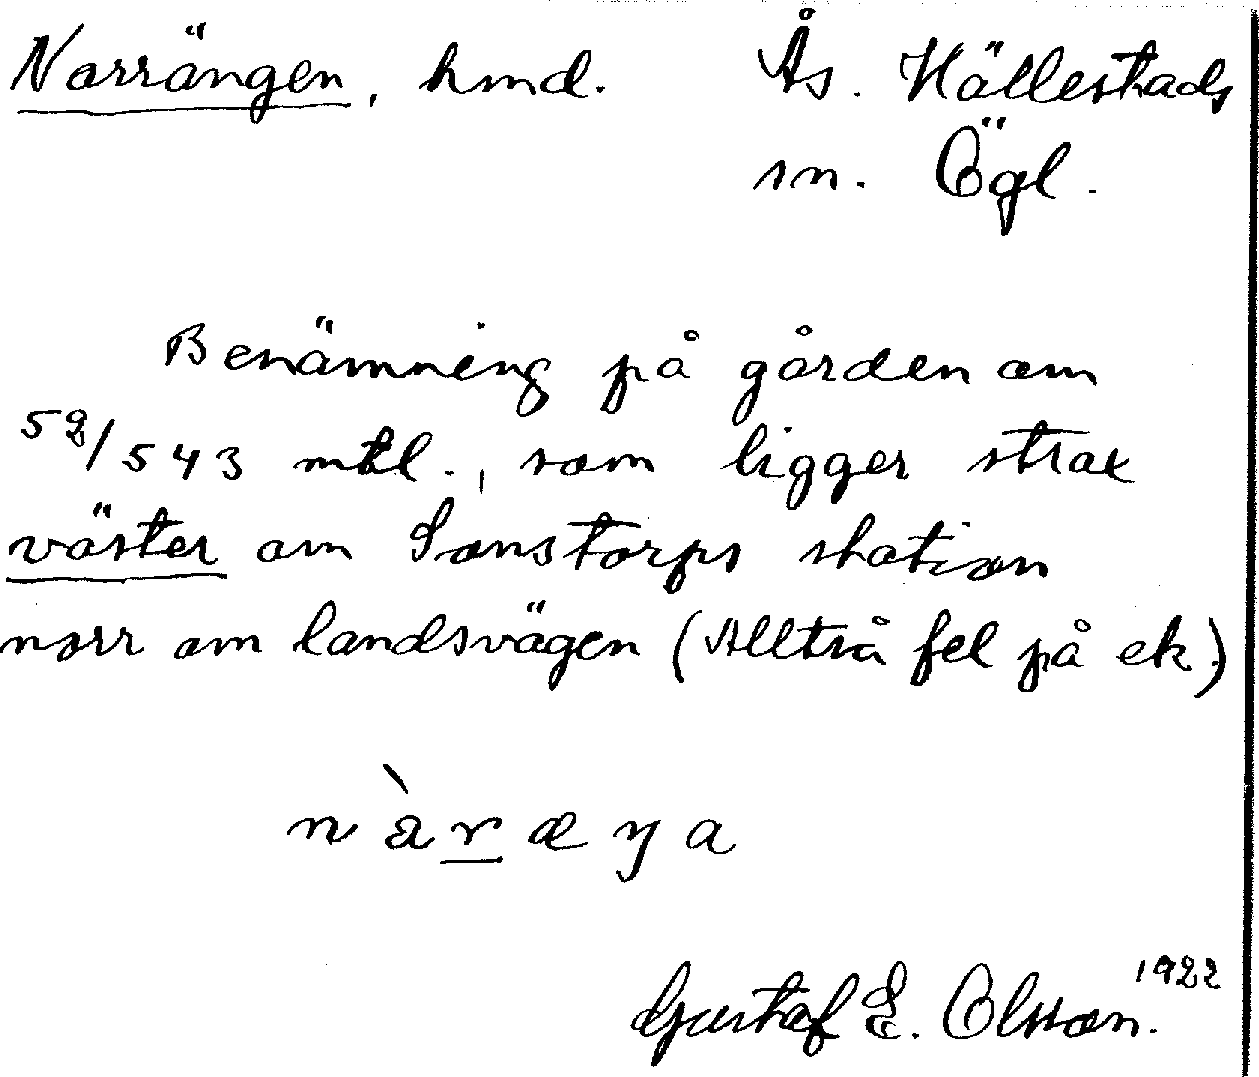 Norrängen, hmd. Ås. Hällestads
sn. Ögl.
Benämning på gården om
52/543 mtl., som ligger strax
väster om Sonstorps station
norr om landsvägen (Alltså fel på ek.)
Gustaf E. Olsson. 1922